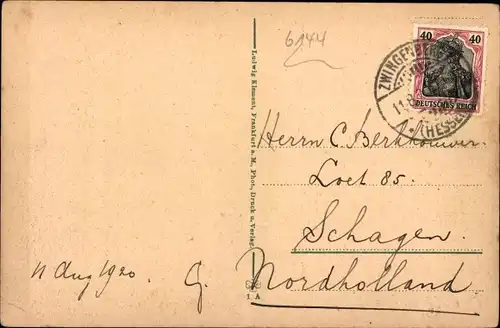 6144
40 40
DEUTSCHES REICH
ZWINGENBERG
11.8.
* (HESSEN)
Ludwig Klement, Frankfurt a. M., Phot., Druck u. Verlag.
Herrn C. Berkhouwer.
Loet 85.
Schagen.
Nordholland.
11 Aug 1920. G.
1. A